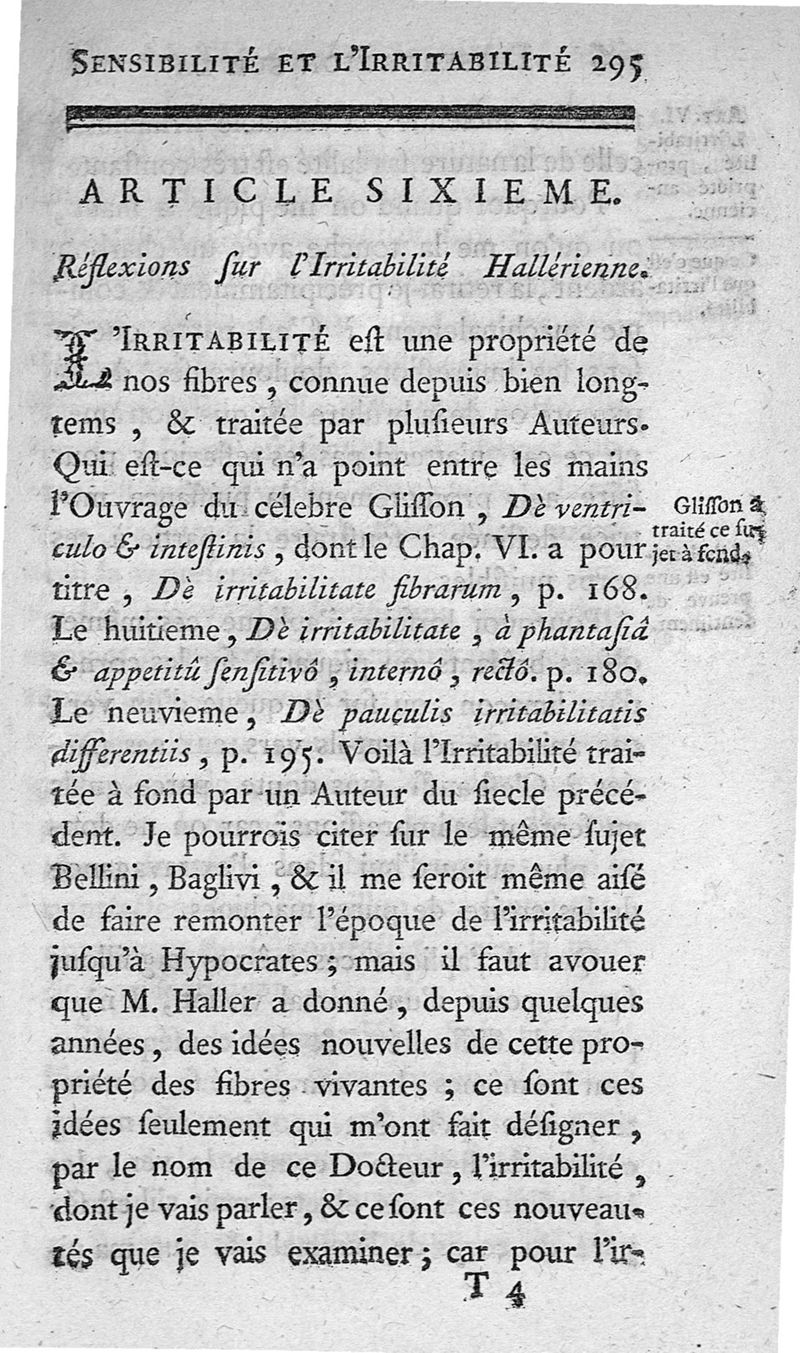 SENSIBILITÉ ET L'IRRITABILITÉ 295
ARTICLE SIXIEME.
Réflexions ſur l'Irritabilité Hallérienne.
L'IRRITABILITÉ eſt une propriété de
nos fibres, connue depuis bien long-
tems, & traitée par pluſieurs Auteurs.
Qui eſt-ce qui n'a point entre les mains
l'Ouvrage du célebre Gliſſon, Dè ventri-
culo & inteſtinis, dont le Chap. VI. a pour
titre, Dè irritabilitate fibrarum, p. 168.
Le huitieme, Dè irritabilitate, à phantaſiâ
& appetitû ſenſitivô, internô, rectô. p. 180.
Le neuvieme, Dè pauculis irritabilitatis
differentiis, p. 195. Voilà l'Irritabilité trai-
tée à fond par un Auteur du ſiecle précé-
dent. Je pourrois citer ſur le même ſujet
Bellini, Baglivi, & il me ſeroit même aiſé
de faire remonter l'époque de l'irritabilité
juſqu'à Hypocrates; mais il faut avouer
que M. Haller a donné, depuis quelques
années, des idées nouvelles de cette pro-
priété des fibres vivantes; ce ſont ces
idées ſeulement qui m'ont fait déſigner,
par le nom de ce Docteur, l'irritabilité,
dont je vais parler, & ce ſont ces nouveau-
tés que je vais examiner; car pour l'ir-
T 4
Gliſſon a
traité ce ſu-
jet à fond.